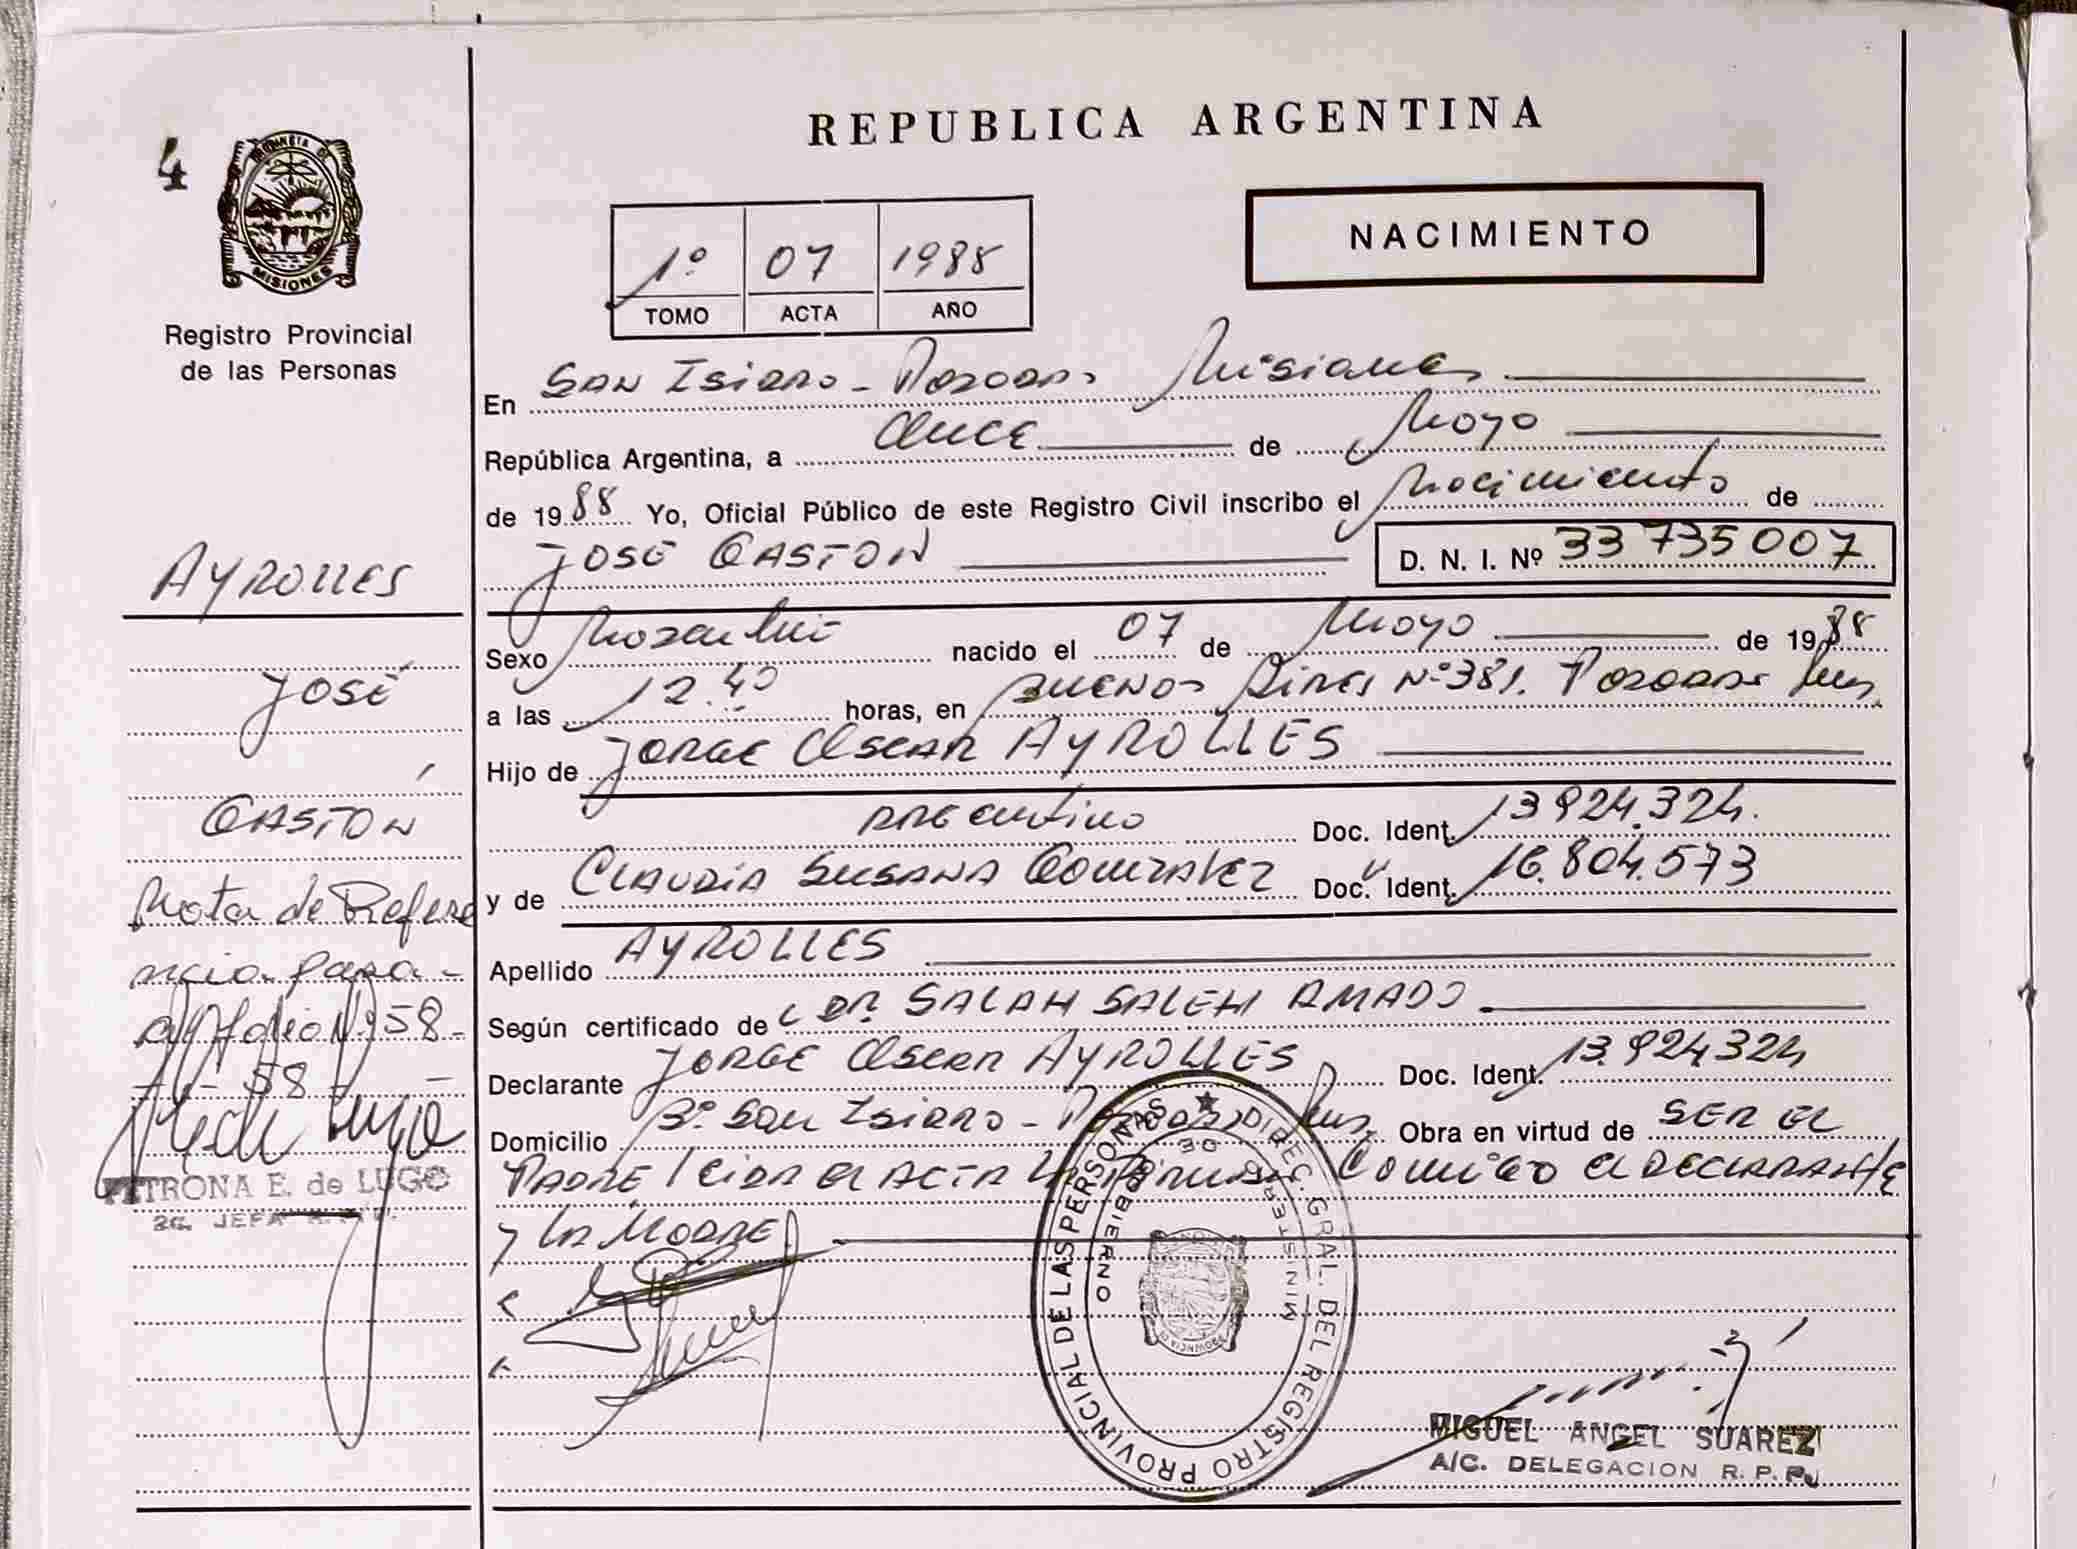 4
PROVINCIA DE
MISIONES
Registro Provincial
de las Personas
REPUBLICA ARGENTINA
1º 07 1988
TOMO ACTA AÑO
NACIMIENTO
En San Isidro - Posadas Misiones
República Argentina, a Once de Mayo
de 1988 Yo, Oficial Público de este Registro Civil inscribo el Nacimiento de
JOSÉ GASTON D. N. I. Nº 33 735 007
Sexo Masculino nacido el 07 de Mayo de 1988
a las 12.40 horas, en BUENOS Aires Nº 381. Posadas Mns.
Hijo de JORGE OSCAR AYROLLES
ARGentino Doc. Ident. 13 924.324.
y de CLAUDIA SUSANA GONZALEZ Doc. Ident. 16.804.573
Apellido AYROLLES
Según certificado de DR. SALAH SALEH AMADO
Declarante JORGE OSCAR AYROLLES Doc. Ident. 13.924324
Domicilio Bº San Isidro - Posadas Mns. Obra en virtud de SER EL
PADRE leida el ACTA la firman Conmigo el DECLARANTE
y la MADRE.
AYROLLES
JOSÉ
GASTON
Nota de Refere
ncia para
folio Nº 58-
- 58 -
PETRONA E. de LUGO
JEFA
DIREC. GRAL. DEL REGISTRO PROVINCIAL DE LAS PERSONAS
MINISTERIO DE GOBIERNO
MIGUEL ANGEL SUAREZ
A/C. DELEGACION R. P. P.